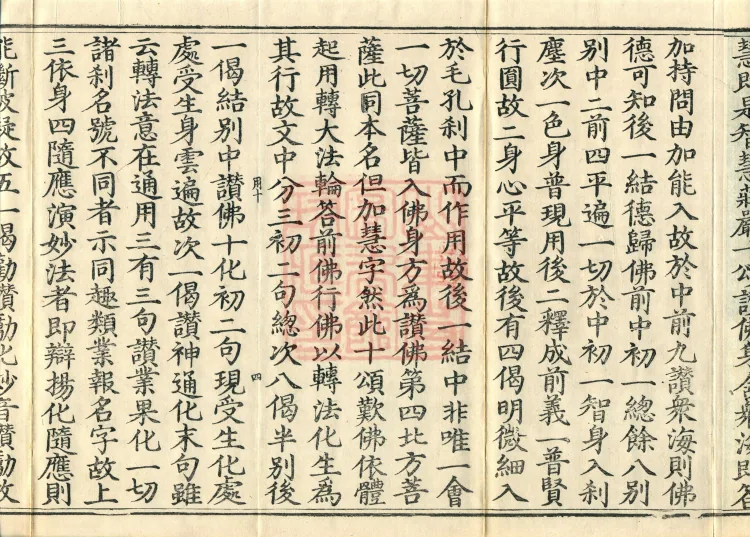 慧即是智慧莊嚴一
加持問由加能入故於中前九讚衆海則佛
德可知後一結德歸佛前中初一總餘八別
別中二前四平遍一切於中初一智身入刹
塵次一色身普現用後二釋成前義一普賢
行圓故二身心平等故後有四偈明微細入
於毛孔刹中而作用故後一結中非唯一會
一切菩薩皆入佛身方爲讚佛第四北方菩
薩此同本名但加慧字然此十頌歎佛依體
起用轉大法輪答前佛行佛以轉法化生爲
其行故文中分三初二句總次八偈半別後
用十
四
一偈結別中讚佛十化初二句現受生化處
處受生身雲遍故次一偈讚神通化末句雖
云轉法意在通用三有三句讚業果化一切
諸刹名號不同者示同趣類業報名字故上
三依身四隨應演妙法者即辯揚化隨應則
能斷彼疑故五一偈勸讚勸化妙音讚勸故